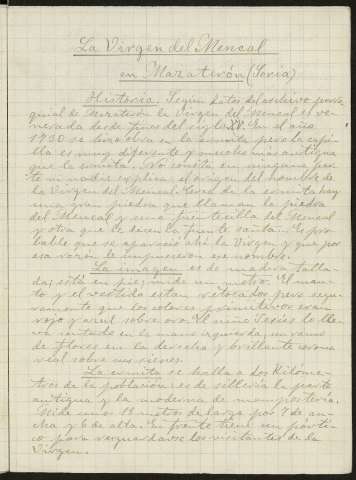 La Virgen del Mencal
en Mazaterón (Soria)
Historia. Según datos del archivo parro-
quial de Mazaterón la Virgen del Mencal es ve-
nerada desde fines del siglo XV. En el año
1730 se hizo obra en la ermita pero la espi-
da es muy diferente y mucho más antigua
que la ermita. No consta en ninguna par-
te ni nadie explica el origen del nombre de
la Virgen del Mencal. Cerca de la ermita hay
una gran piedra que llaman la piedra
del Mencal y una fuentecilla del Mencal
y otra que le dicen la fuente santa. Es pro-
bable que se apareció ahí la Virgen y que por
esa razón le impusieron ese nombre.
La imagen es de madera talla-
da; está en pie; mide un metro. El man-
to y el vestido están retocados pero segu-
ramente que los colores primitivos eran
rojo y azul sobre oro. El niño Jesús lo lle-
va sentado en la mano izquierda, un ramo
de flores en la derecha y brillante corona
real sobre sus sienes.
La ermita se halla a dos kilóme-
tros de la población; es de sillería la parte
antigua y la moderna de mampostería.
Mide unos 13 metros de larga por 7 de an-
cha y 6 de alta. En frente tiene un pórti-
co para resguardarse los visitantes de la
Virgen.